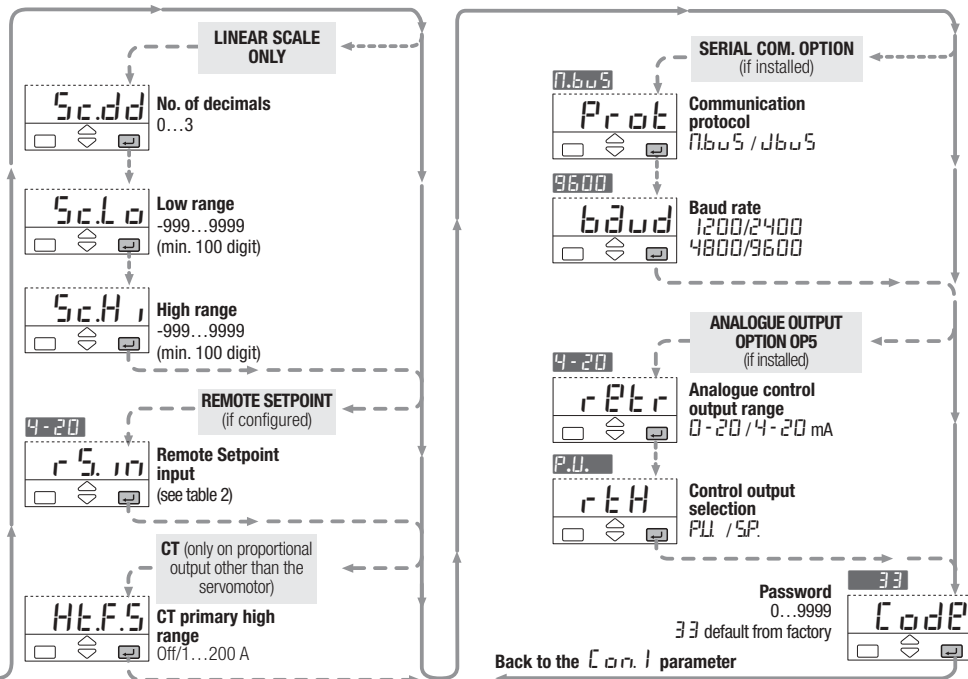 LINEAR SCALE
ONLY
Sc.dd
No. of decimals
0...3
Sc.Lo
Low range
-999...9999
(min. 100 digit)
Sc.Hi
High range
-999...9999
(min. 100 digit)
REMOTE SETPOINT
(if configured)
4-20
rS.in
Remote Setpoint
input
(see table 2)
CT (only on proportional
output other than the
servomotor)
Ht.F.S
CT primary high
range
Off/1...200 A
SERIAL COM. OPTION
(if installed)
M.buS
Prot
Communication
protocol
M.buS / JbuS
9600
baud
Baud rate
1200/2400
4800/9600
ANALOGUE OUTPUT
OPTION OP5
(if installed)
4-20
retr
Analogue control
output range
0-20 / 4-20 mA
P.U.
rtH
Control output
selection
P.U. / S.P.
33
Code
Password
0...9999
33 default from factory
Back to the Con.1 parameter